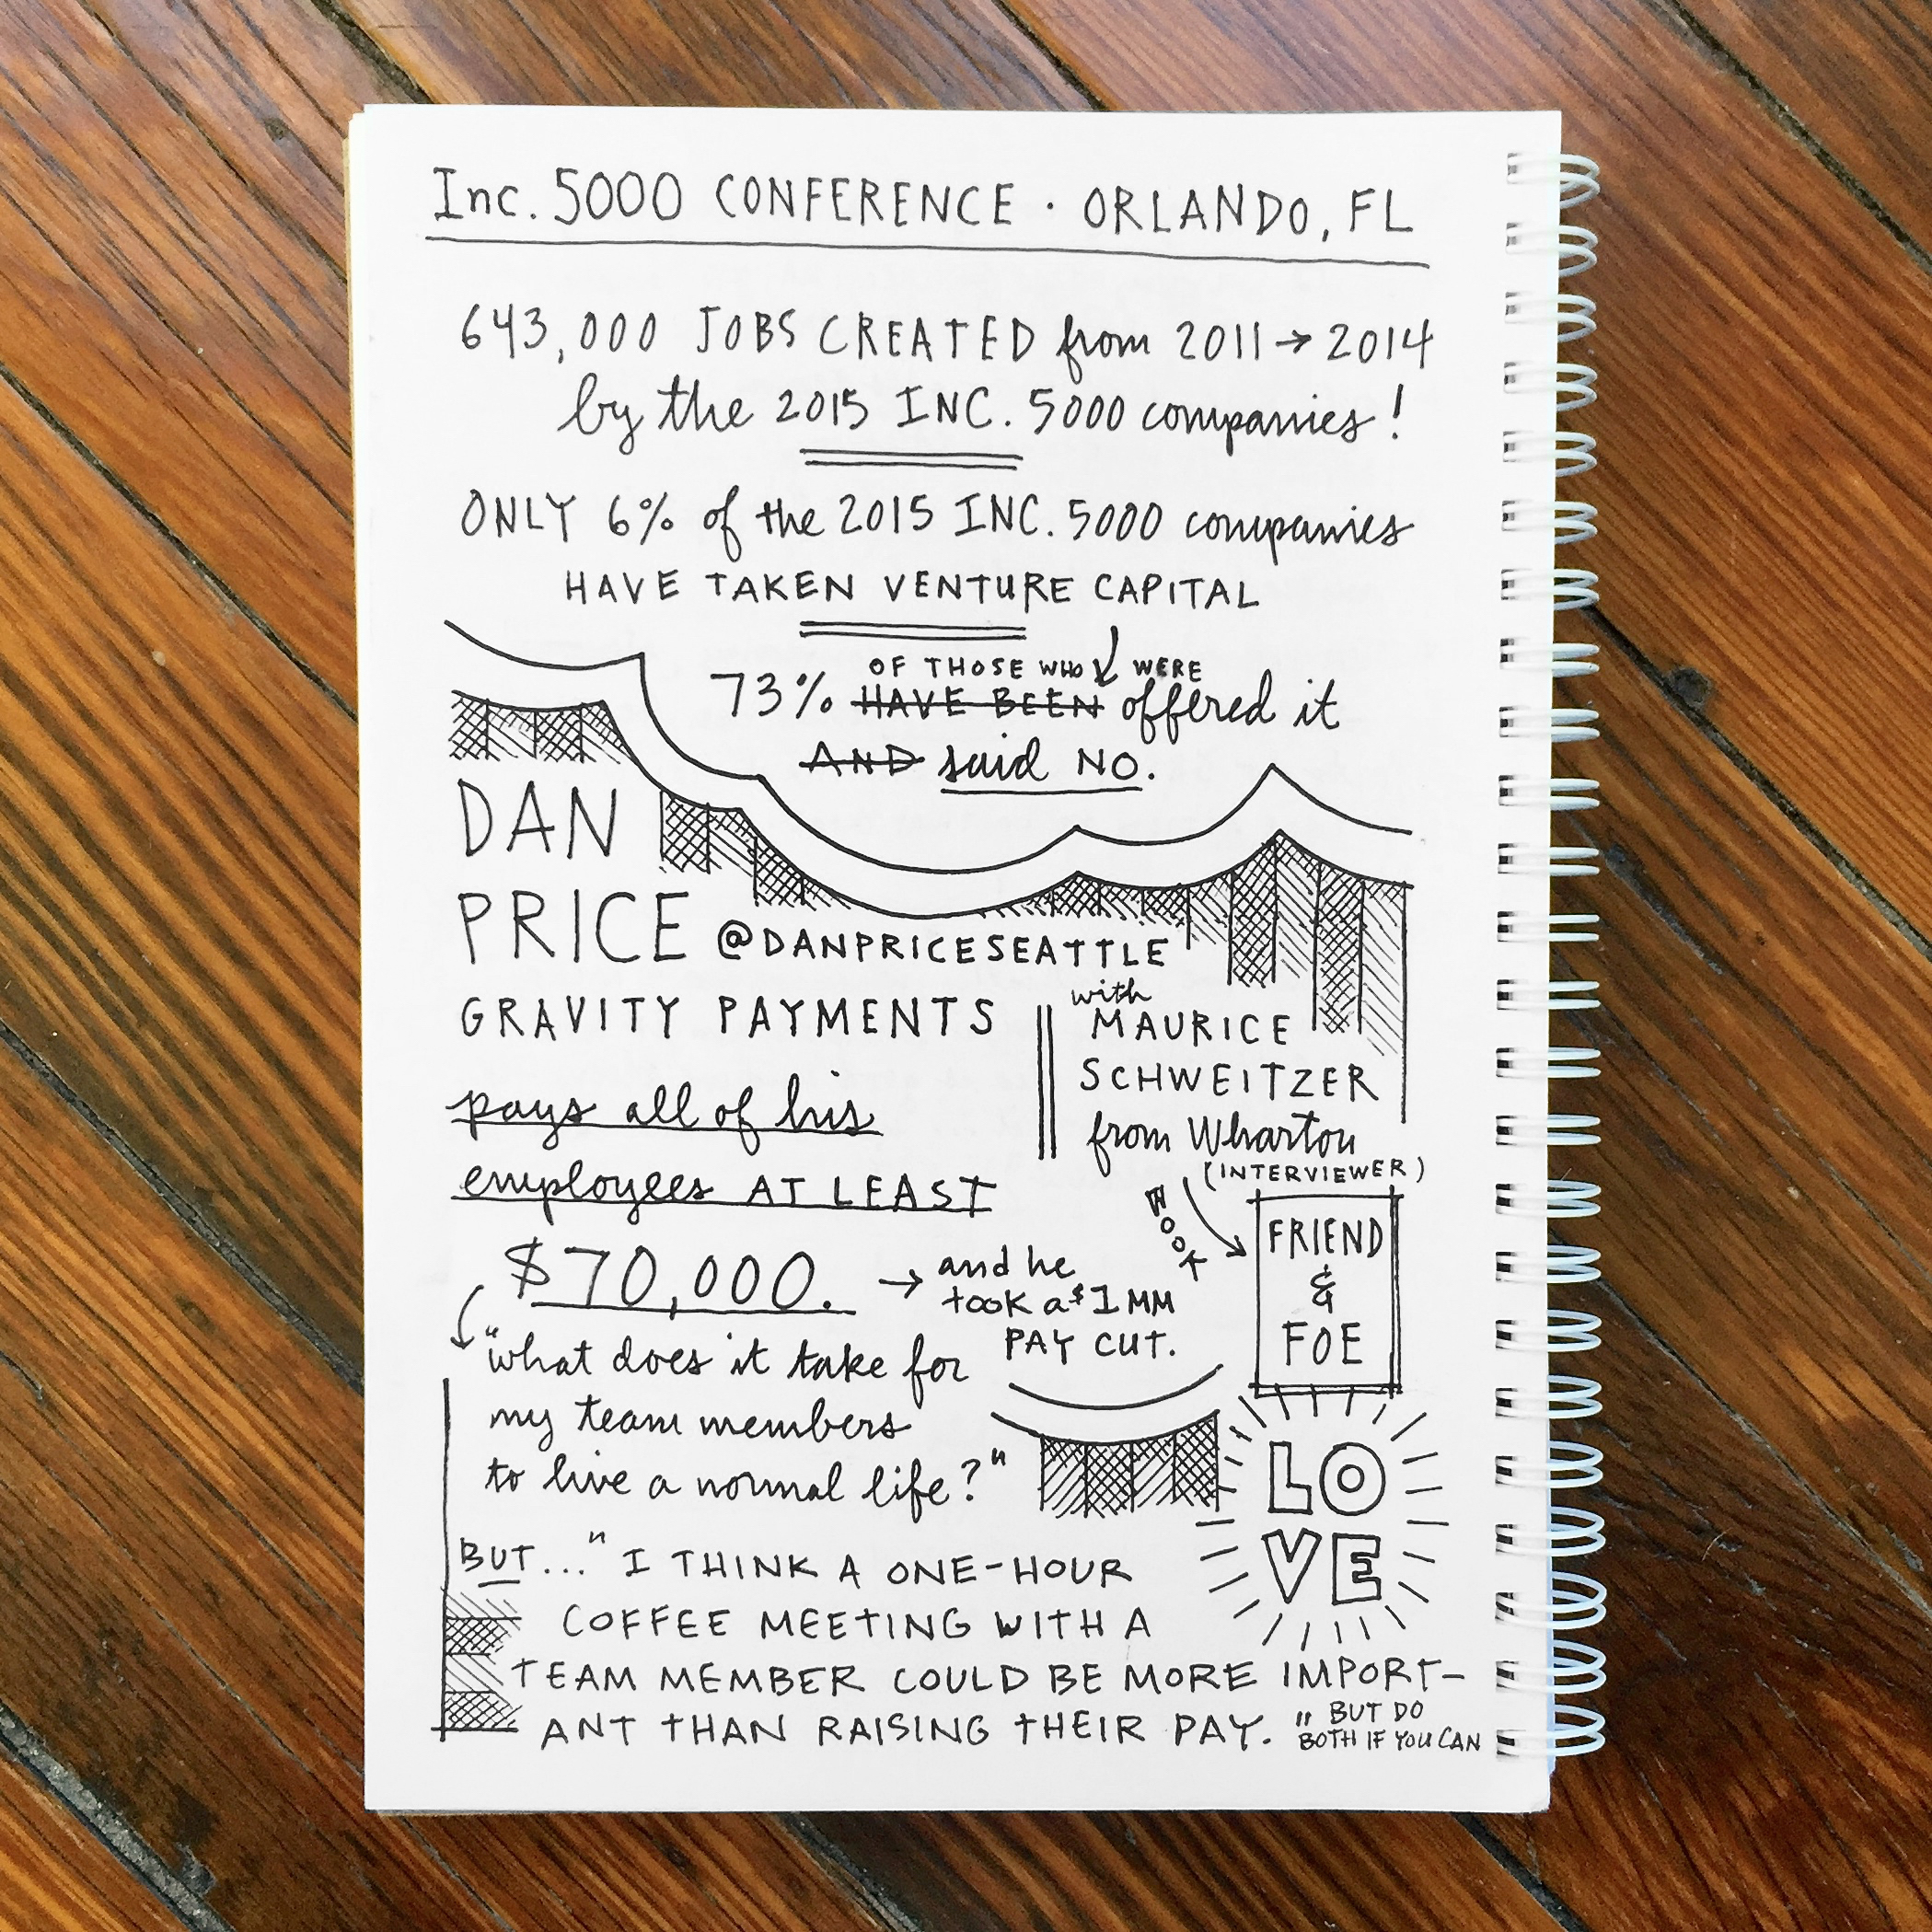 Inc. 5000 CONFERENCE · ORLANDO, FL
643,000 JOBS CREATED from 2011 → 2014
by the 2015 INC. 5000 companies!
ONLY 6% of the 2015 INC. 5000 companies
HAVE TAKEN VENTURE CAPITAL
OF THOSE WHO WERE
73% HAVE BEEN offered it
AND said NO.
DAN
PRICE @DANPRICESEATTLE
GRAVITY PAYMENTS
pays all of his
employees AT LEAST
$70,000. → and he
took a $1MM
PAY CUT.
with
MAURICE
SCHWEITZER
from Wharton
(INTERVIEWER)
BOOK
FRIEND
&
FOE
"what does it take for
my team members
to live a normal life?"
LO
VE
BUT..." I THINK A ONE-HOUR
COFFEE MEETING WITH A
TEAM MEMBER COULD BE MORE IMPORT-
ANT THAN RAISING THEIR PAY."
BUT DO
BOTH IF YOU CAN